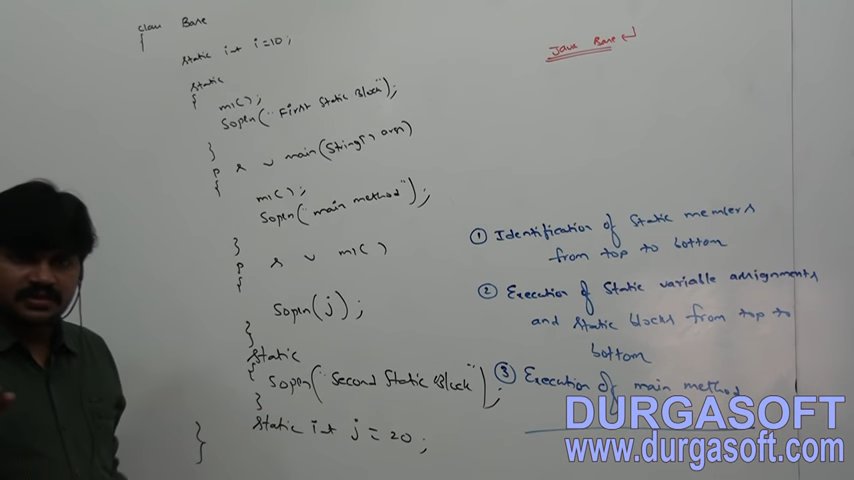 class Base
{
static int i=10;
static
{
m1();
Sopln("First Static Block");
}
p s v main(String[] args)
{
m1();
Sopln("main method");
}
p s v m1()
{
Sopln(j);
}
static
{
Sopln("Second Static Block");
}
static int j = 20;
}
Java Base ↵
① Identification of static members
from top to bottom
② Execution of static variable assignments
and static blocks from top to
bottom
③ Execution of main method
DURGASOFT
www.durgasoft.com